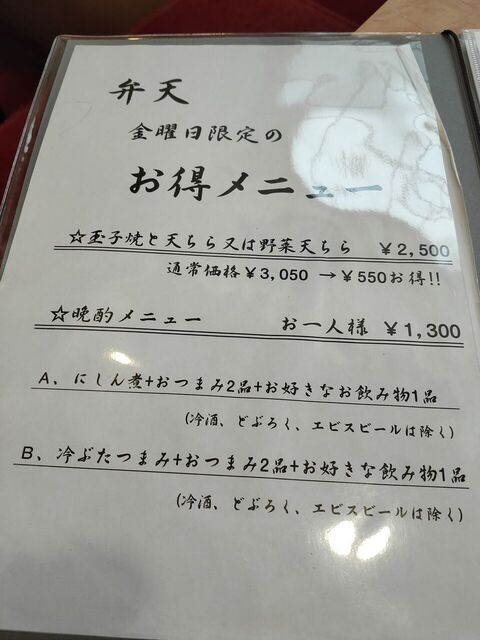 弁天
金曜日限定の
お得メニュー
☆玉子焼と天ちら又は野菜天ちら ¥2,500
通常価格¥3,050 →¥550お得!!
☆晩酌メニュー お一人様 ¥1,300
A、にしん煮+おつまみ2品+お好きなお飲み物1品
(冷酒、どぶろく、エビスビールは除く)
B、冷ぶたつまみ+おつまみ2品+お好きな飲み物1品
(冷酒、どぶろく、エビスビールは除く)